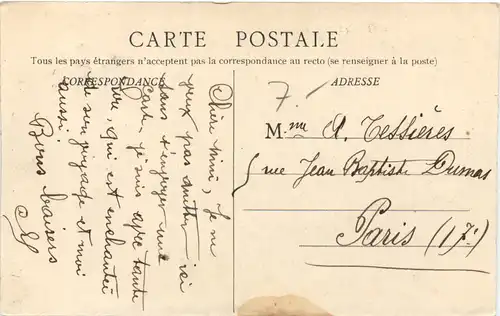 CARTE POSTALE
Tous les pays étrangers n'acceptent pas la correspondance au recto (se renseigner à la poste)
CORRESPONDANCE
ADRESSE
Chère Mimi, Je ne
veux pas quitter ici
sans t'envoyer une
carte, je suis avec tante
, qui est enchantée
de son voyage et moi
aussi.
Bons baisers
7.
Mme A. Tessières
5 rue Jean Baptiste Dumas
Paris (17e)